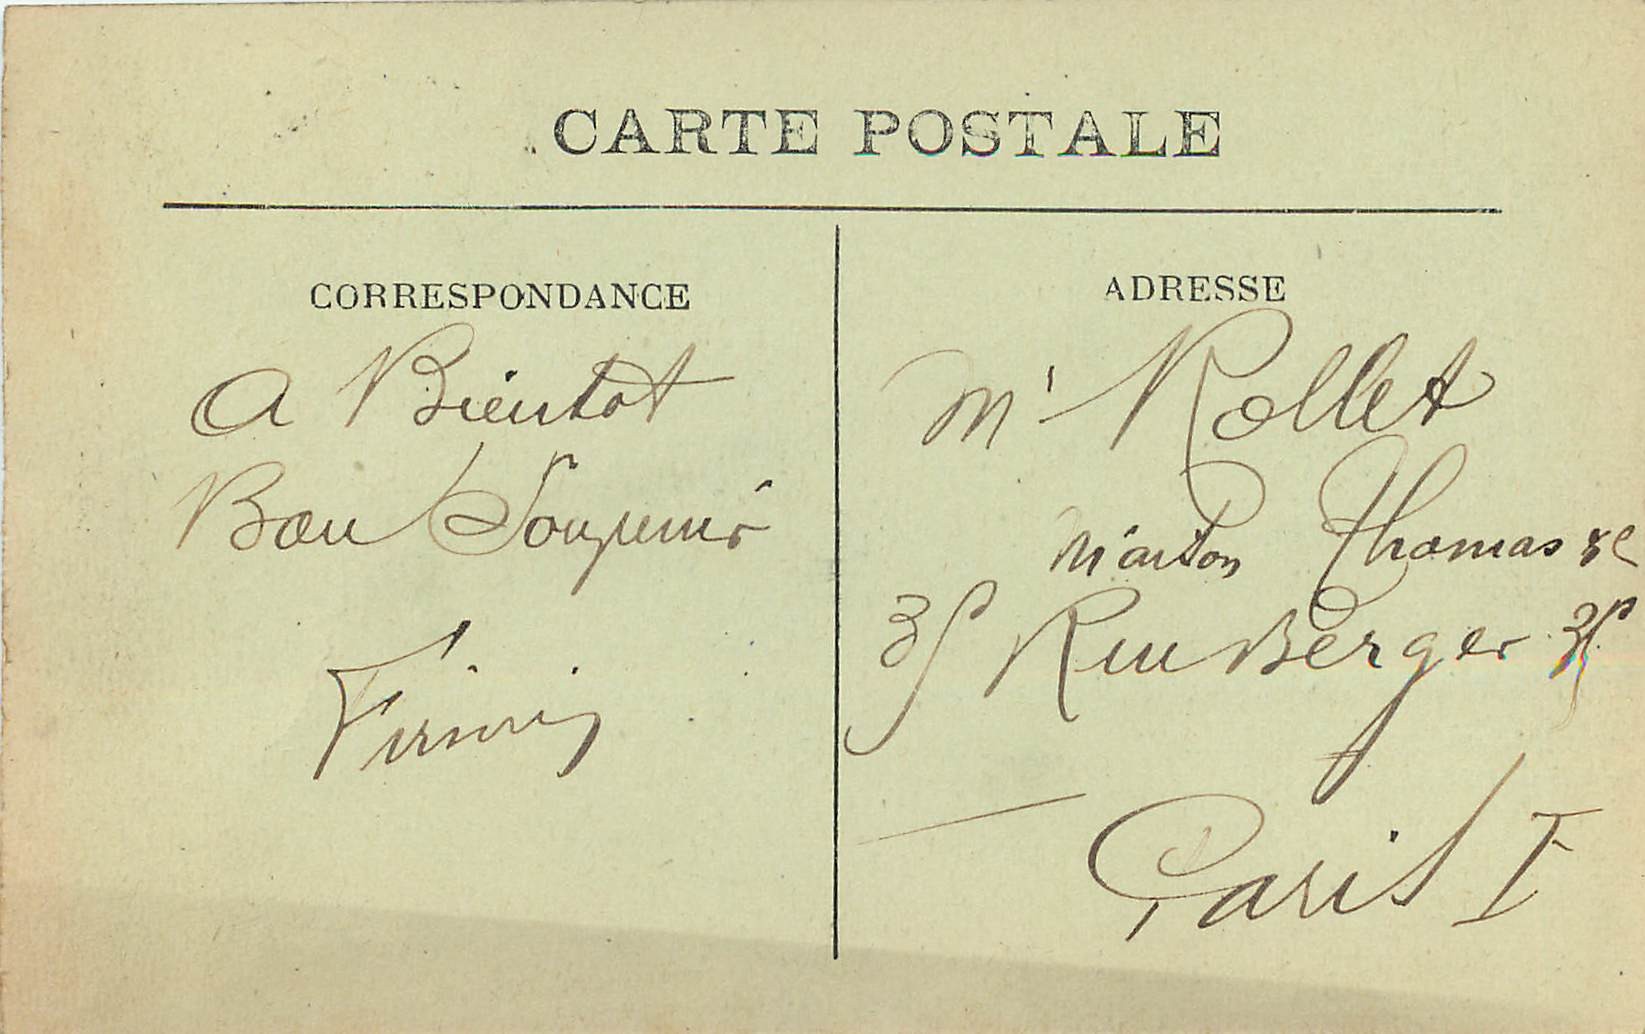 CARTE POSTALE
CORRESPONDANCE
A Bientot
Bon Souvenir
Firmin
ADRESSE
Mr Rollet
Maison Thomas
35 Rue Berger 35
Paris I